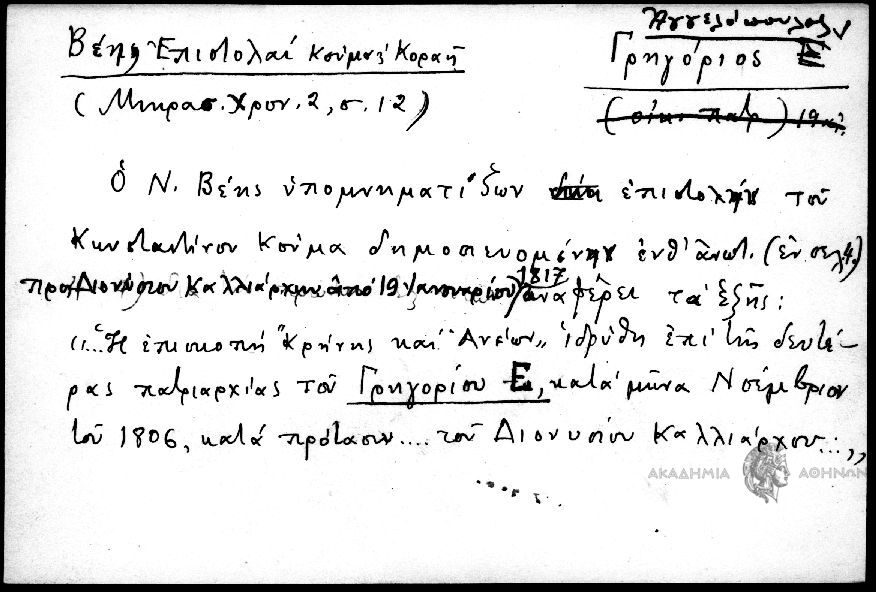 Βέης, Ἐπιστολαί Κούμα, Κοραῆ
(Μικρασ. Χρον. 2, σ. 12)
Ἀγγελόπουλος
Γρηγόριος
(οἰκ. πατρ) 19
Ὁ Ν. Βέης ὑπομνηματίζων ἐπιστολήν τοῦ
Κωνσταντίνου Κούμα δημοσιευομένην ἐνθ' ἀνωτ. (ἐν σελ 4)
πρός Διονύσιον Καλλιάρχην ἀπό 19 Ἰανουαρίου 1817 ἀναφέρει τά ἑξῆς:
"... Ἡ ἐπισκοπή "Κρήνης καί Ἀνέων" ἱδρύθη ἐπί τῆς δευτέ-
ρας πατριαρχίας τοῦ Γρηγορίου Ε, κατά μῆνα Νοέμβριον
τοῦ 1806, κατά πρότασιν .... τοῦ Διονυσίου Καλλιάρχου...,,
ΑΚΑΔΗΜΙΑ ΑΘΗΝΩΝ